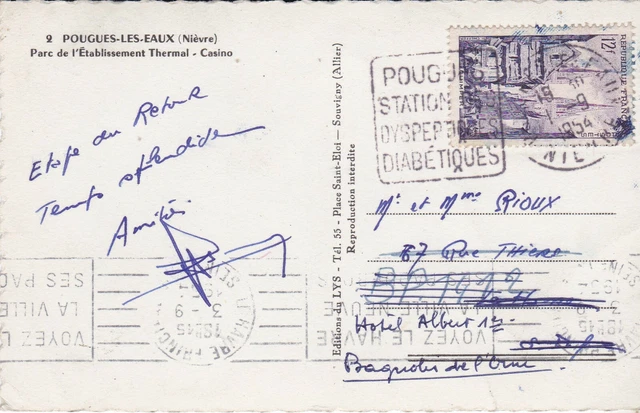 2 POUGUES-LES-EAUX (Nièvre)
Parc de l'Établissement Thermal - Casino
Etape du Retour
Temps splendide
Amitiés
Editions du LYS - Tél. 55 - Place Saint-Eloi - Souvigny (Allier)
Reproduction interdite
12F
POUGUES
STATION
DYSPEPTIQUES
DIABÉTIQUES
1954
Mr et Mme RIOUX
67 Rue THIERS
BP 1912
Le Havre
Hotel Albert 1er
Bagnoles de l'Orne
VOYEZ LE HAVRE
LA VILLE NEUVE
SES PAQ
LE HAVRE PRINCIP
18H45
3-9
1954